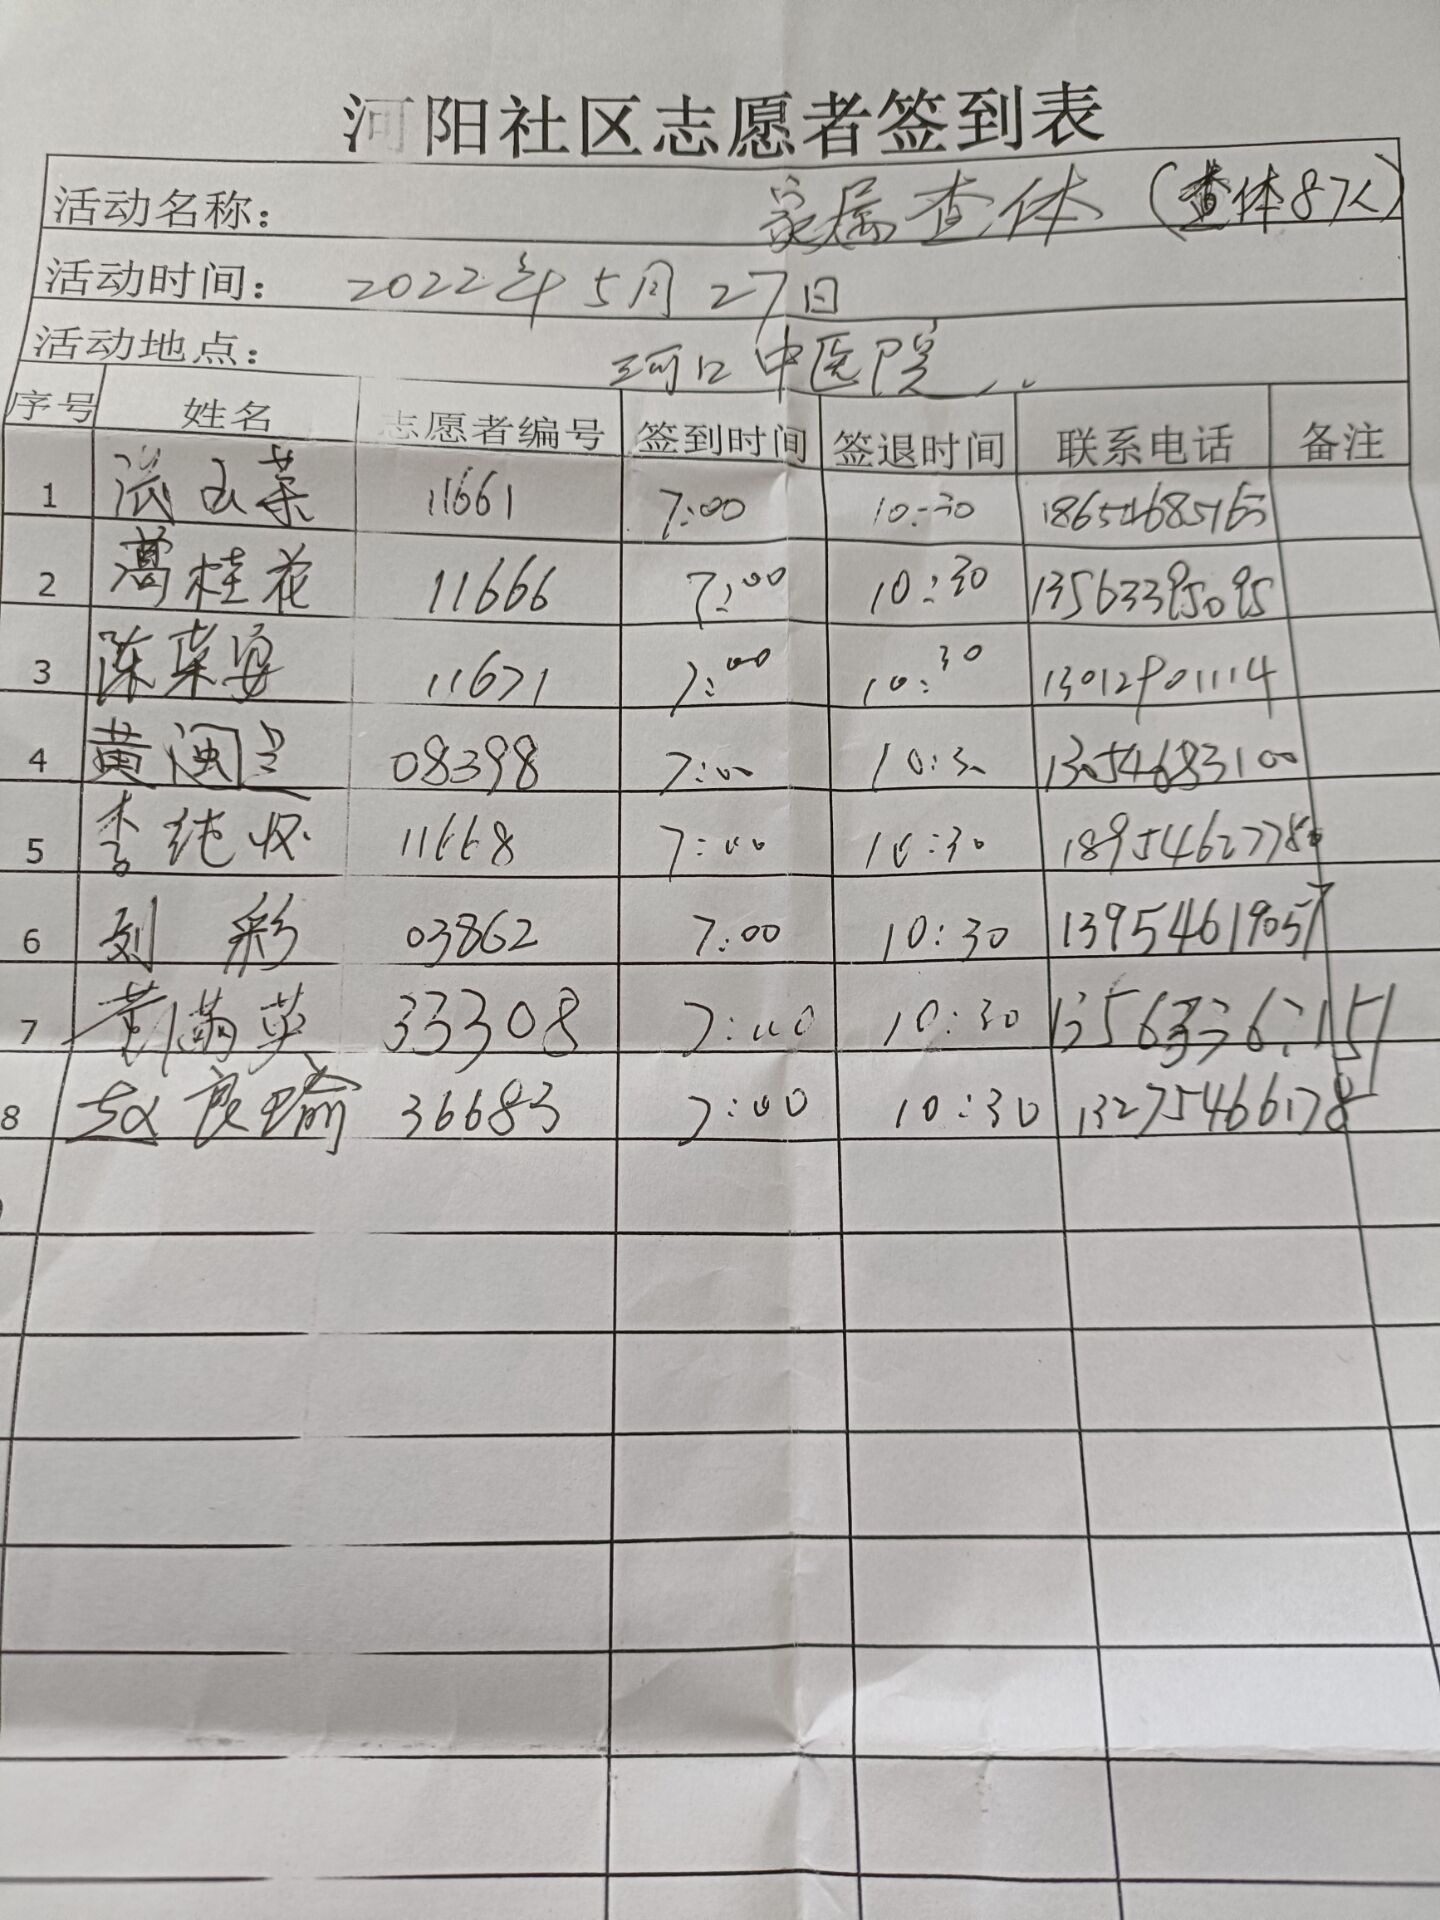 河阳社区志愿者签到表
活动名称： 家属查体（查体87人）
活动时间： 2022年5月27日
活动地点： 河口中医院
序号 姓名 志愿者编号 签到时间 签退时间 联系电话 备注
1 张玉荣 11661 7:00 10:30
2 葛桂花 11666 7:00 10:30 13563395095
3 陈荣安 11671 7:00 10:30 13012901114
4 黄闽兰 08398 7:00 10:30 13054683100
5 李纯怀 11668 7:00 10:30 18954627780
6 刘彩 03862 7:00 10:30 13954619057
7 黄满英 33308 7:00 10:30
8 赵良瑜 36683 7:00 10:30 13275466178